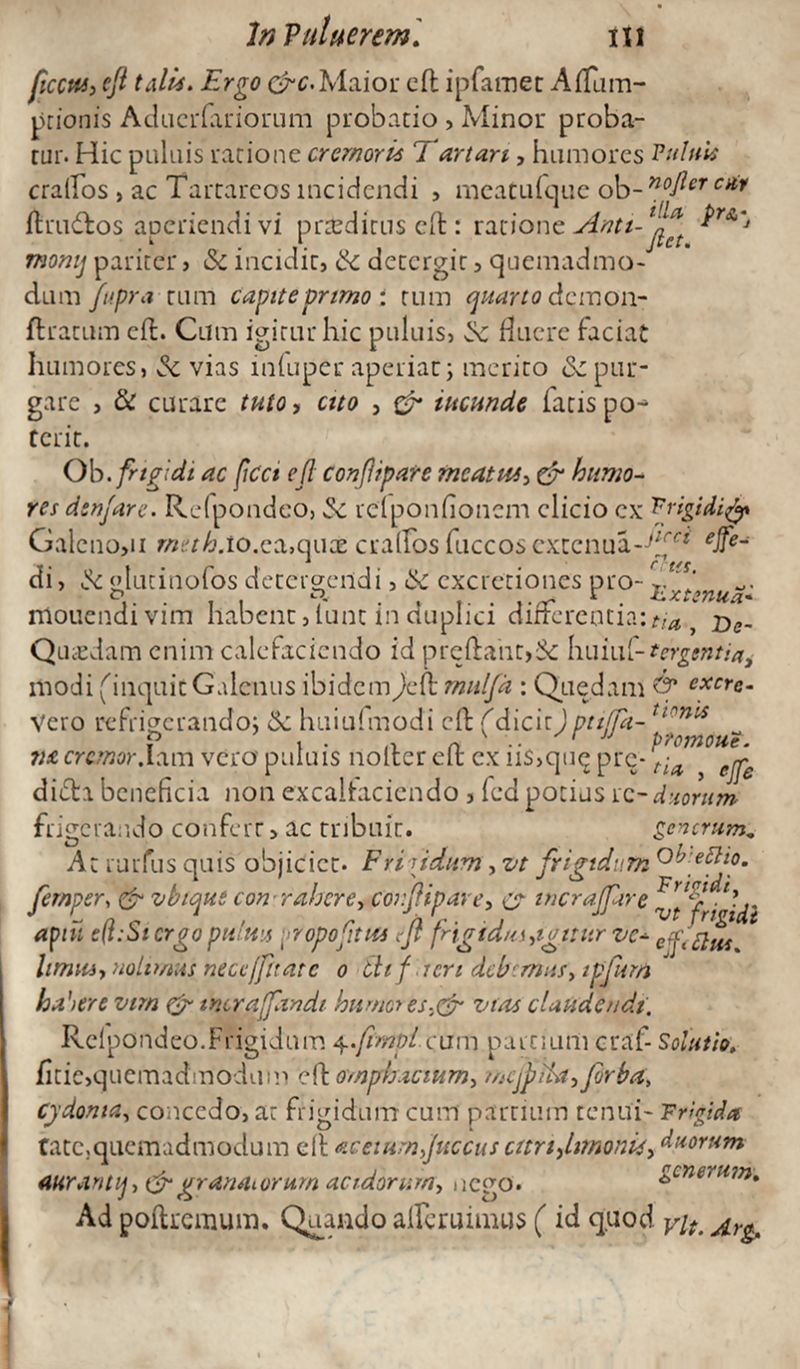 In Puluerem. 111
ſiccus, eſt talis. Ergo &c. Maior eſt ipſamet Aſſum-
ptionis Aduerſariorum probatio, Minor proba-
tur. Hic puluis ratione cremoris Tartari, humores
craſſos, ac Tartareos incidendi, meatuſque ob-
ſtructos aperiendi vi præditus eſt: ratione Anti-
monij pariter, & incidit, & detergit, quemadmo-
dum ſupra tum capite primo: tum quarto demon-
ſtratum eſt. Cum igitur hic puluis, & fluere faciat
humores, & vias inſuper aperiat; merito & pur-
gare, & curare tuto, cito, & iucunde ſatis po-
terit.
Puluis
noſter cur
illa præ-
ſtet.
Ob. frigidi ac ſicci eſt conſtipare meatus, & humo-
res denſare. Reſpondeo, & reſponſionem elicio ex
Galeno, 11 meth. 10. ea, quæ craſſos ſuccos extenuã-
di, & glutinoſos detergendi, & excretiones pro-
mouendi vim habent, ſunt in duplici differentia:
Quædam enim calefaciendo id pręſtant, & huiuſ-
modi (inquit Galenus ibidem) eſt mulſa: Quędam
vero refrigerando; & huiuſmodi eſt (dicit) ptiſſa-
næ cremor. Iam vero puluis noſter eſt ex iis, quę prę-
dicta beneficia non excalfaciendo, ſed potius re-
frigerando confert, ac tribuit.
Frigidi &
ſicci effe-
ctus.
Extenuã-
tia, De-
tergentia,
& excre-
tionis
promouẽ-
tia, eſſe
duorum
generum.
At rurſus quis objiciet. Frigidum, vt frigidum
ſemper, & vbique contrahere, conſtipare, & incraſſare
aptũ eſt: Si ergo puluis propoſitus eſt frigidus, igitur ve-
limus, nolimus neceſſitate 
habere vim & incraſſandi humores, & vias claudendi.
Obiectio.
Frigidi,
vt frigidi
effectus.
Reſpondeo. Frigidum 4. ſimpl. cum partium craſ-
ſitie, quemadmodum eſt omphacium, meſpila, ſorba,
cydonia, concedo, at frigidum cum partium tenui-
tate, quemadmodum eſt acetum, ſuccus citri, limonis,
aurantij, & granatorum acidorum, nego.
Solutio.
Frigida
duorum
generum.
Ad poſtremum. Quando aſſeruimus ( id quod
Vlt. Arg.